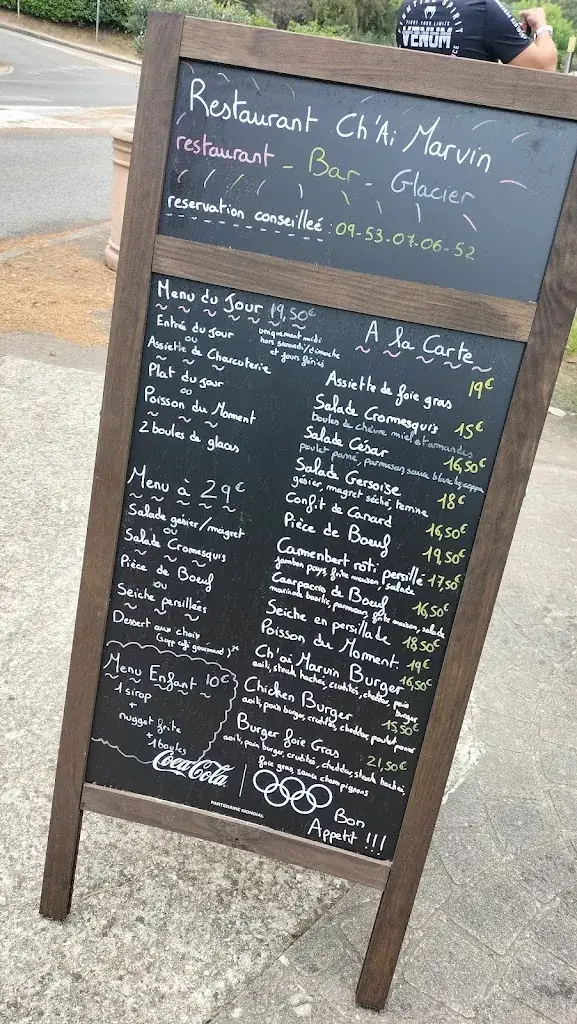 VENUM
Restaurant Ch'Ai Marvin
restaurant - Bar - Glacier
reservation conseilleé : 09-53-07-06-52
Menu du Jour 19,50€
uniquement midi
hors samedi/dimache
et jours fériés
Entrée du Jour
ou
Assiette de Charcuterie
Plat du jour
ou
Poisson du Moment
2 boules de glaces
Menu à 29€
Salade gesier/magret
ou
Salade Cromesquis
Pièce de Boeuf
ou
Seiche persillées
Dessert aux choix
Menu Enfant 10€
1 sirop
+
nugget frite
+
1 boules
A la Carte
Assiette de foie gras 19€
Salade Cromesquis 15€
boules de chèvre miel et amandes
Salade César 16,50€
poulet pané, parmesan, sauce blanche,
Salade Gersoise 18€
gésier, magret séché, terrine
Confit de Canard 16,50€
Pièce de Boeuf 19,50€
Camembert roti persillé 17,50€
jambon pays, frite maison, salade
Caarpaccio de Boeuf 16,50€
marinade basilic, parmesan, frite maison, salade
Seiche en persillade 18,50€
Poisson du Moment 19€
Ch'ai Marvin Burger 16,50€
steak haché, crudités, cheddar, pain burger,
Chicken Burger 15,50€
pain burger, crudités, cheddar, poulet panné
Burger foie Gras 21,50€
pain burger, crudités, cheddar, steak haché,
foie gras, sauce champignons
Coca-Cola
PARTENAIRE MONDIAL
Bon
Appetit !!!